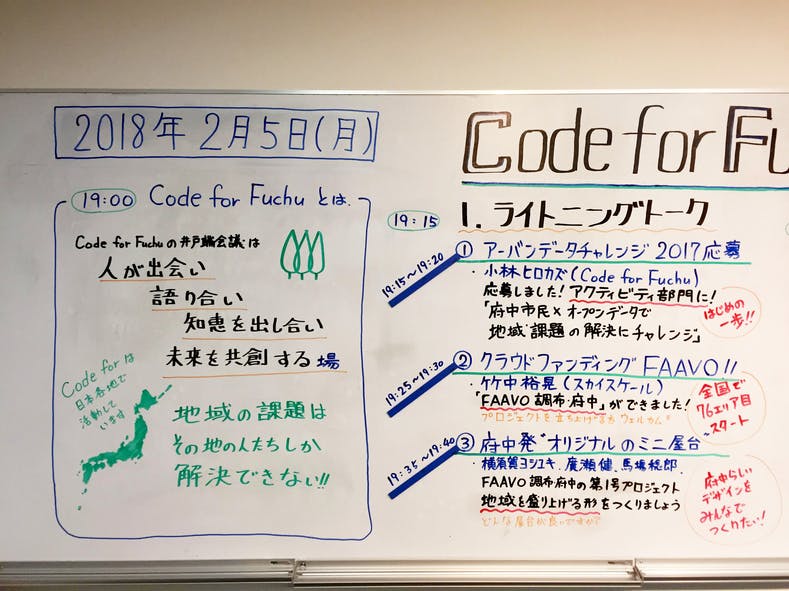 2018年2月5日(月)
19:00 Code for Fuchu とは、
Code for Fuchuの井戸端会議は
人が出会い
語り合い
知恵を出し合い
未来を共創する場
Code forは
日本各地で
活動して
います
地域の課題は
その地の人たちしか
解決できない!!
Code for Fu
19:15
1. ライトニングトーク
19:15〜19:20
① アーバンデータチャレンジ2017応募
・小林ヒロカズ(Code for Fuchu)
応募しました!アクティビティ部門に!
「府中市民×オープンデータで
地域課題の解決にチャレンジ」
はじめの
一歩!!
19:25〜19:30
② クラウドファンディングFAAVO!!
・竹中裕晃(スカイスケール)
「FAAVO調布・府中」ができました!
プロジェクトを立ち上げる方 ウェルカム
全国で
76エリア目
スタート
19:35〜19:40
③ 府中発"オリジナルのミニ屋台
・横須賀ヨシユキ、廣瀬健、馬場稔郎
・FAAVO調布府中の第1号プロジェクト
地域を盛り上げる形をつくりましょう
どんな屋台が良いですか?
府中らしい
デザインを
みんなで
つくりたい!